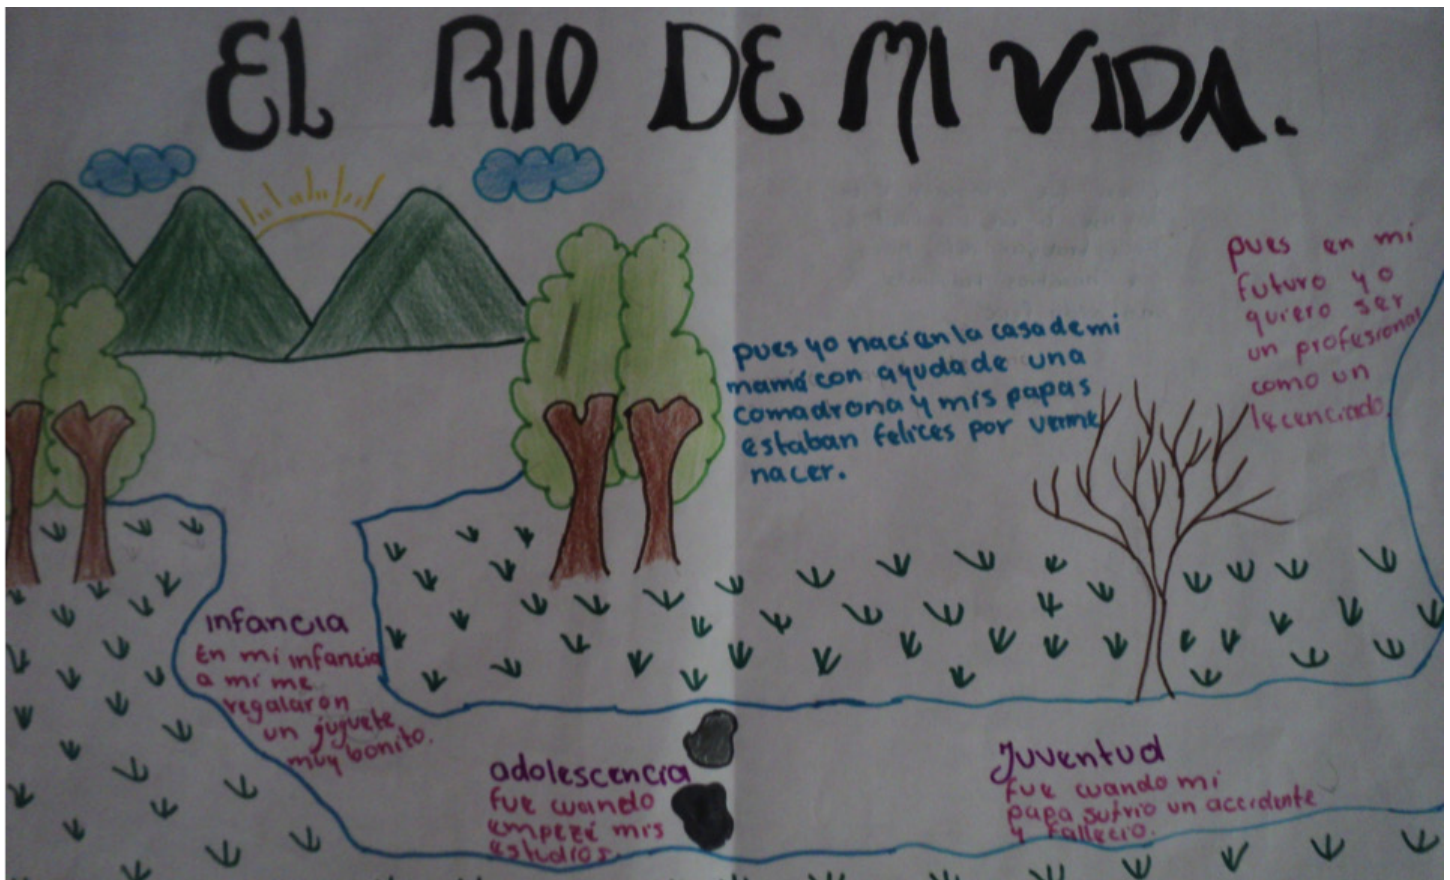 EL RIO DE MI VIDA.
pues yo nací en la casa de mi
mamá con ayuda de una
comadrona y mis papas
estaban felices por verme
nacer.
pues en mi
futuro yo
quiero ser
un profesional
como un
lecenciado.
infancia
En mi infancia
a mi me
regalaron
un juguete
muy bonito.
adolescencia
fue cuando
empezé mis
estudios.
Juventud
fue cuando mi
papa sufrio un accidente
y fallecio.